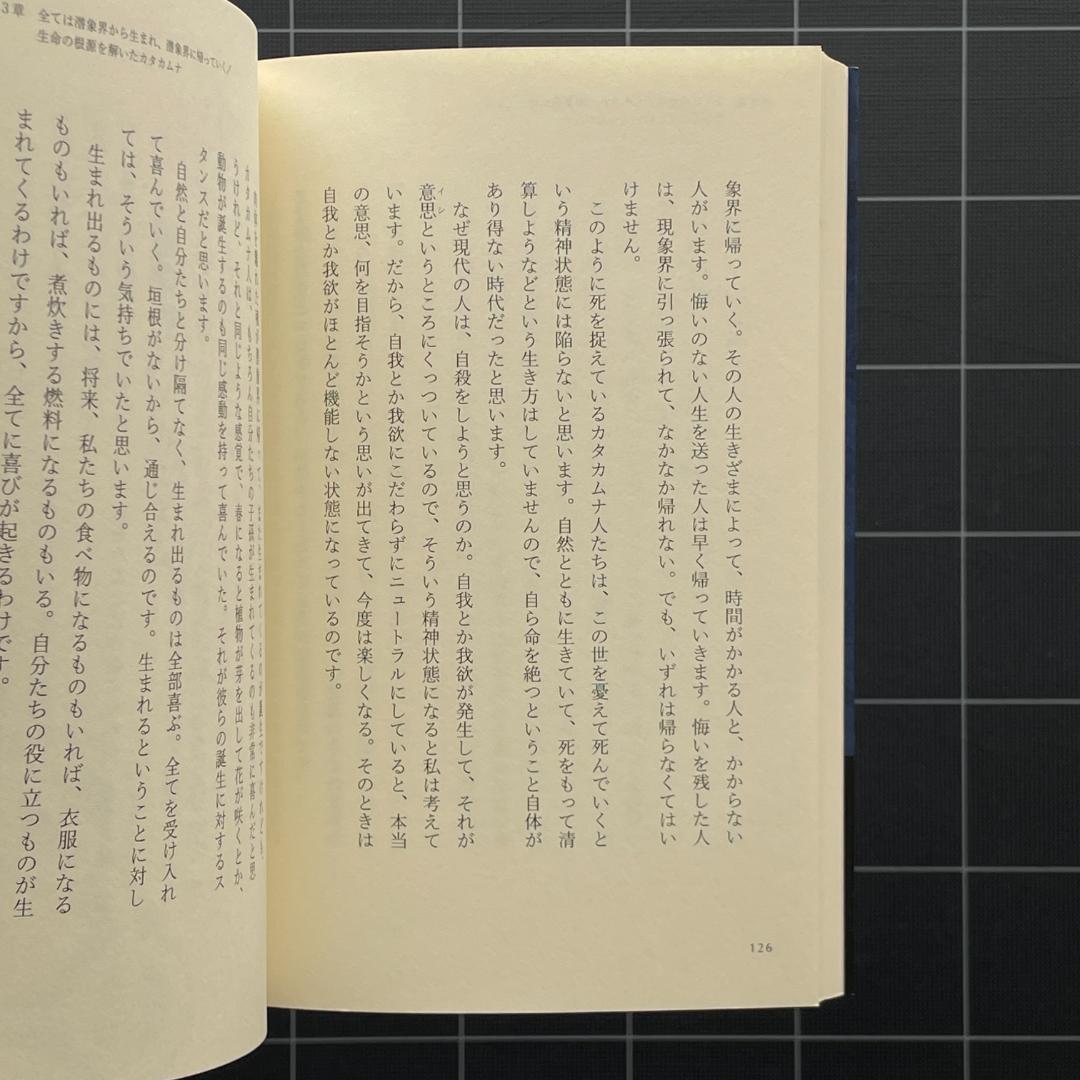 象界に帰っていく。その人の生きざまによって、時間がかかる人と、かからない
人がいます。悔いのない人生を送った人は早く帰っていきます。悔いを残した人
は、現象界に引っ張られて、なかなか帰れない。でも、いずれは帰らなくてはい
けません。
このように死を捉えているカタカムナ人たちは、この世を憂えて死んでいくと
いう精神状態には陥らないと思います。自然とともに生きていて、死をもって清
算しようなどという生き方はしていませんので、自ら命を絶つということ自体が
あり得ない時代だったと思います。
なぜ現代の人は、自殺をしようと思うのか。自我とか我欲が発生して、それが
イシ
意思というところにくっついているので、そういう精神状態になると私は考えて
います。だから、自我とか我欲にこだわらずにニュートラルにしていると、本当
の意思、何を目指そうかという思いが出てきて、今度は楽しくなる。そのときは
自我とか我欲がほとんど機能しない状態になっているのです。
126
3章 全ては潜象界から生まれ、潜象界に帰っていく/
生命の根源を解いたカタカムナ
カタカムナ人は、もちろん自分たちの子孫が生まれてくるのも非常に喜んだと思
うけれど、それと同じような感覚で、春になると植物が芽を出して花が咲くとか、
動物が誕生するのも同じ感動を持って喜んでいた。それが彼らの誕生に対するス
タンスだと思います。
自然と自分たちと分け隔てなく、生まれ出るものは全部喜ぶ。全てを受け入れ
て喜んでいく。垣根がないから、通じ合えるのです。生まれるということに対し
ては、そういう気持ちでいたと思います。
生まれ出るものには、将来、私たちの食べ物になるものもいれば、衣服になる
ものもいれば、煮炊きする燃料になるものもいる。自分たちの役に立つものが生
まれてくるわけですから、全てに喜びが起きるわけです。